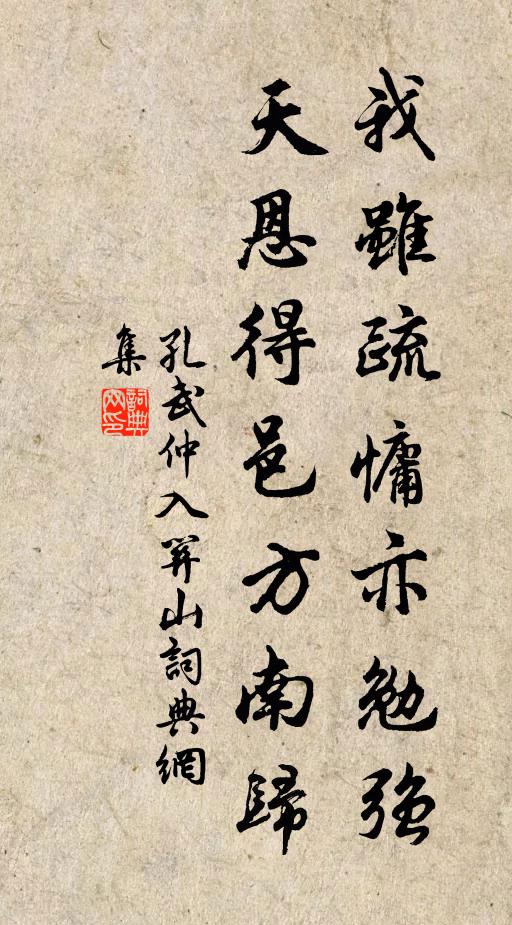 我雖疏慵亦勉強
天恩得邑方南歸
孔武仲入關山詞典網
集
詞典網印